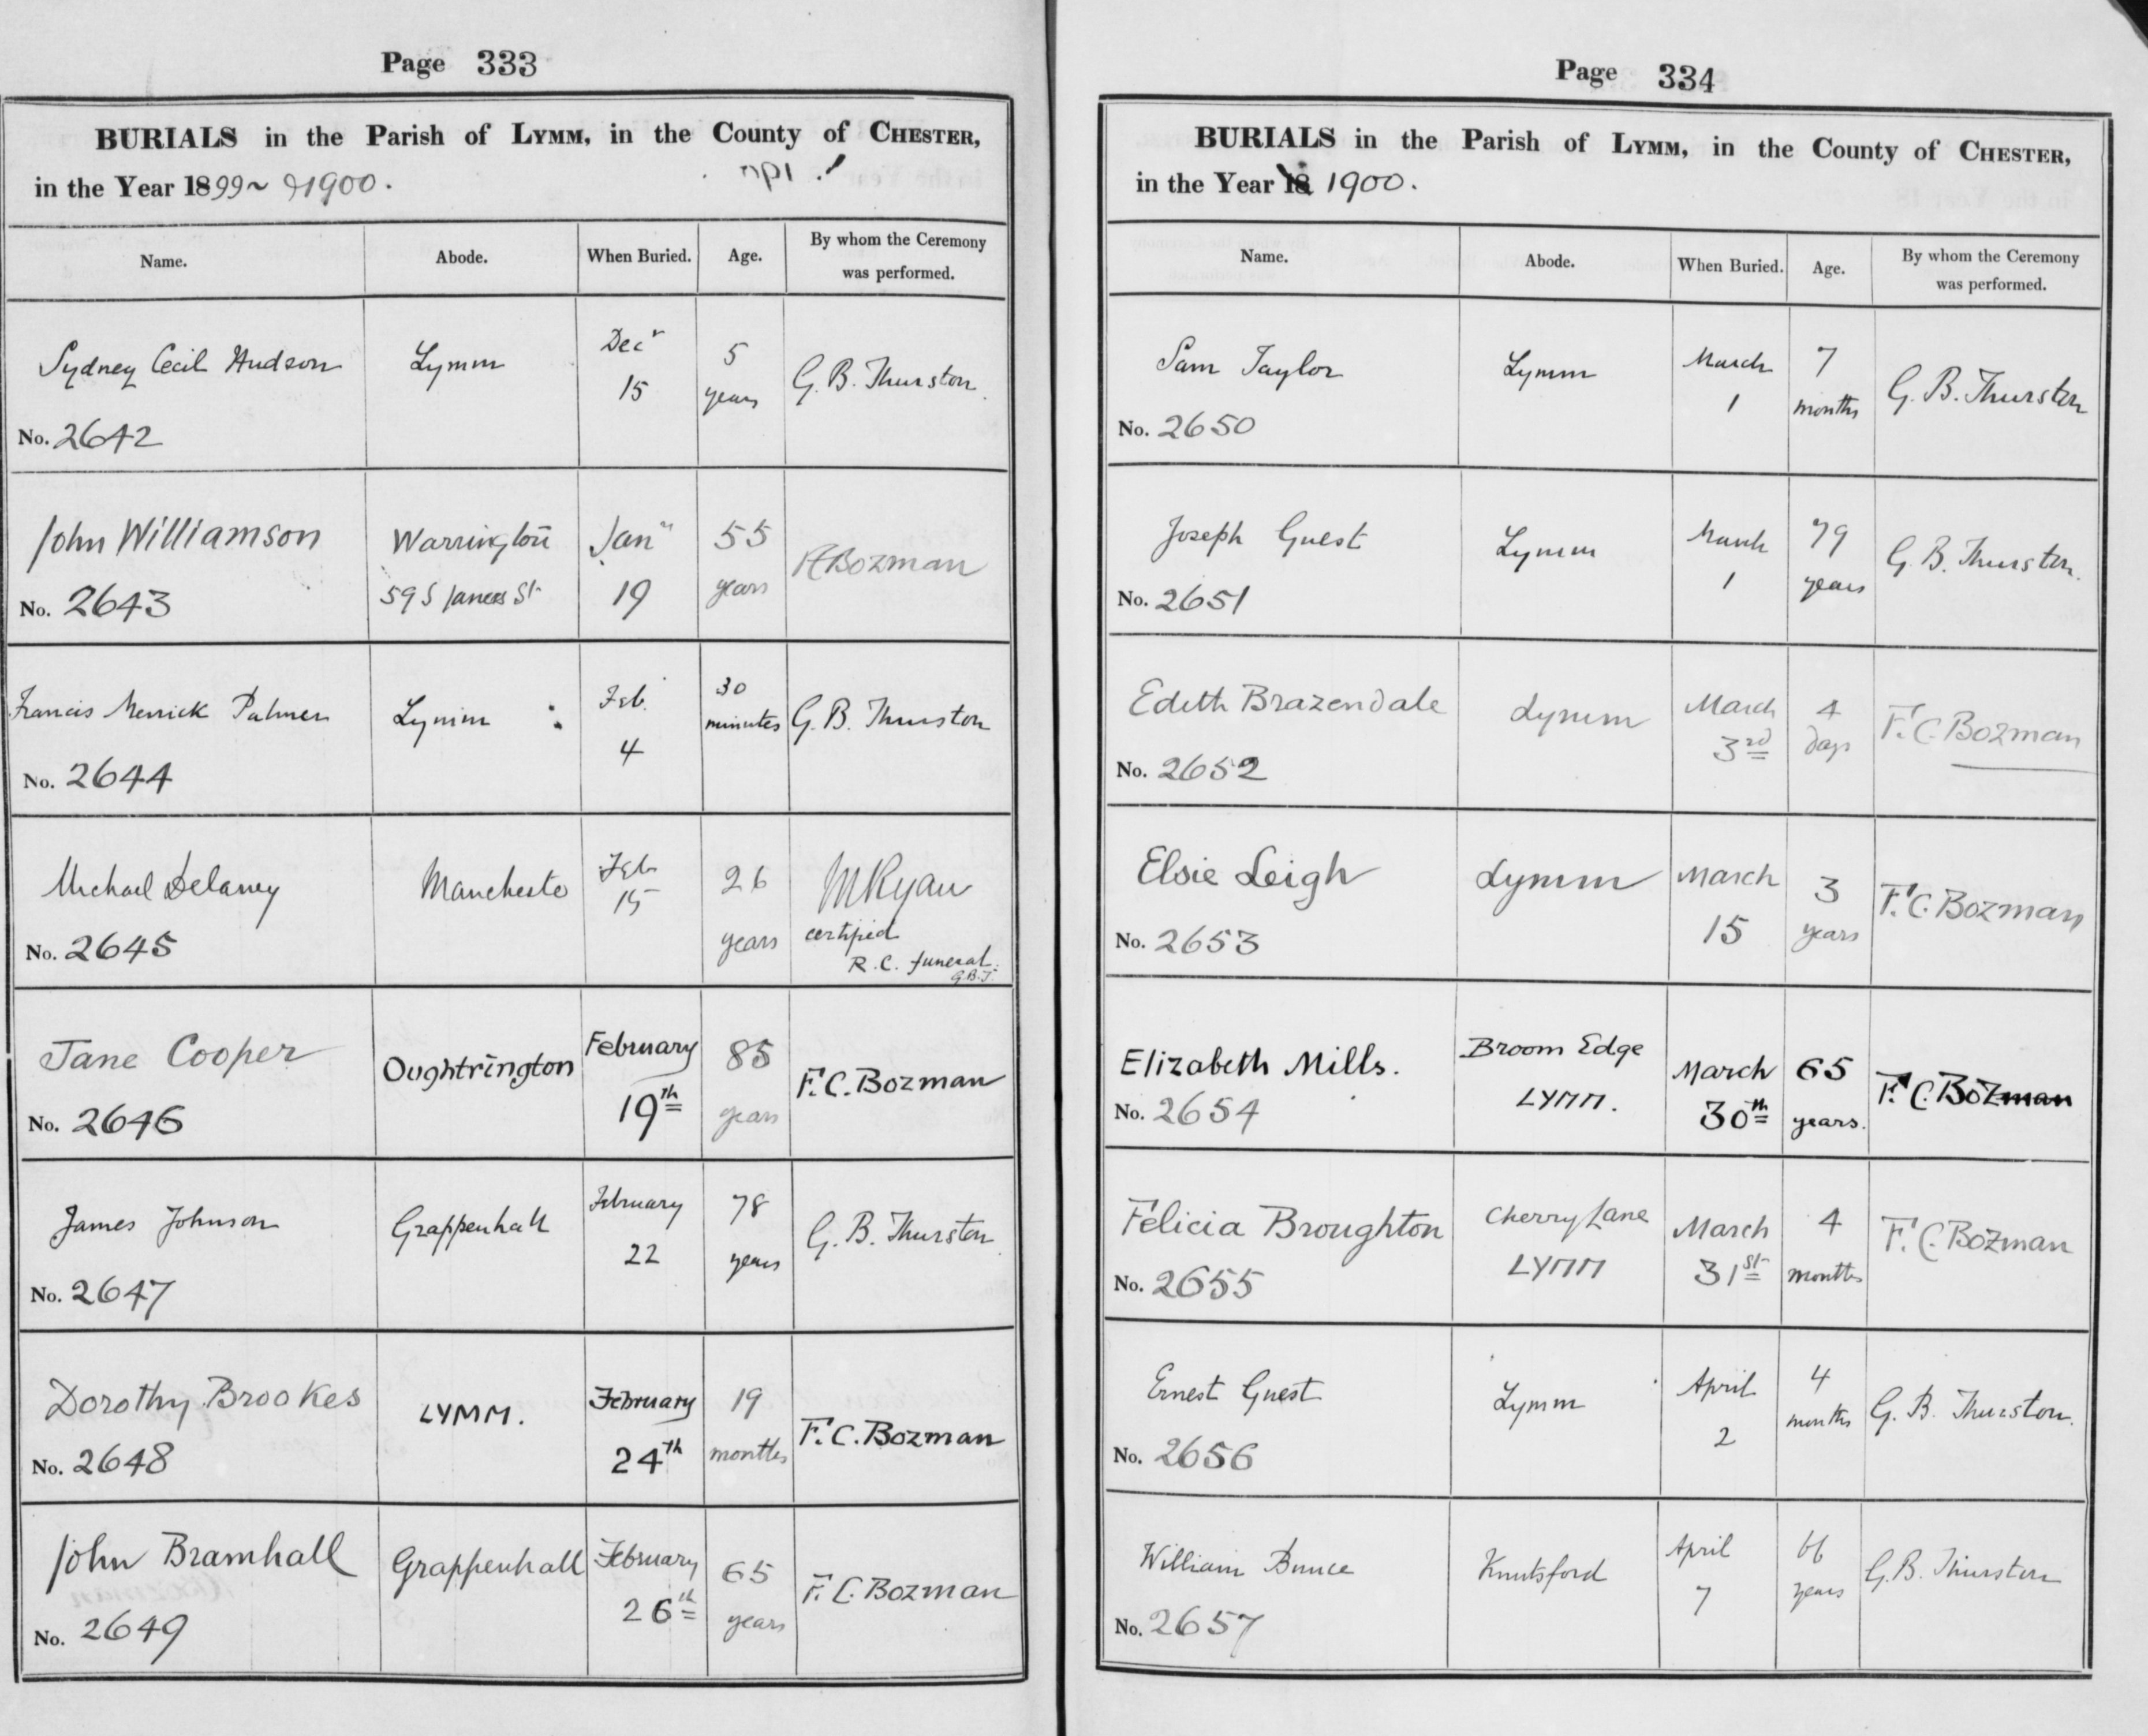 Page 333
BURIALS in the Parish of LYMM, in the County of CHESTER,
in the Year 1899 ~ & 1900.
Name. Abode. When Buried. Age. By whom the Ceremony was performed.
Sydney Cecil Hudson Lymm Decr 15 5 years G. B. Thurston
No. 2642
John Williamson Warrington 59 St James St Jany 19 55 years Bozman
No. 2643
Francis Merrick Palmer Lymm Feb. 4 30 minutes G. B. Thurston
No. 2644
Michael Delaney Manchester Feb 15 26 years M Ryan
certified
R. C. funeral.
G.B.T.
No. 2645
Jane Cooper Oughtrington February 19th 85 years F. C. Bozman
No. 2646
James Johnson Grappenhall February 22 78 years G. B. Thurston
No. 2647
Dorothy Brookes LYMM. February 24th 19 months F. C. Bozman
No. 2648
John Bramhall Grappenhall February 26th 65 years F. C. Bozman
No. 2649
Page 334
BURIALS in the Parish of LYMM, in the County of CHESTER,
in the Year 18 1900.
Name. Abode. When Buried. Age. By whom the Ceremony was performed.
Sam Taylor Lymm March 1 7 months G. B. Thurston
No. 2650
Joseph Guest Lymm March 1 79 years G. B. Thurston.
No. 2651
Edith Brazendale Lymm March 3rd 4 days F. C. Bozman
No. 2652
Elsie Leigh Lymm March 15 3 years F. C. Bozman
No. 2653
Elizabeth Mills. Broom Edge LYMM. March 30th 65 years. F. C. Bozman
No. 2654
Felicia Broughton Cherry Lane LYMM March 31st 4 months F. C. Bozman
No. 2655
Ernest Guest Lymm April 2 4 months G. B. Thurston.
No. 2656
William Bunce Knutsford April 7 66 years G. B. Thurston
No. 2657